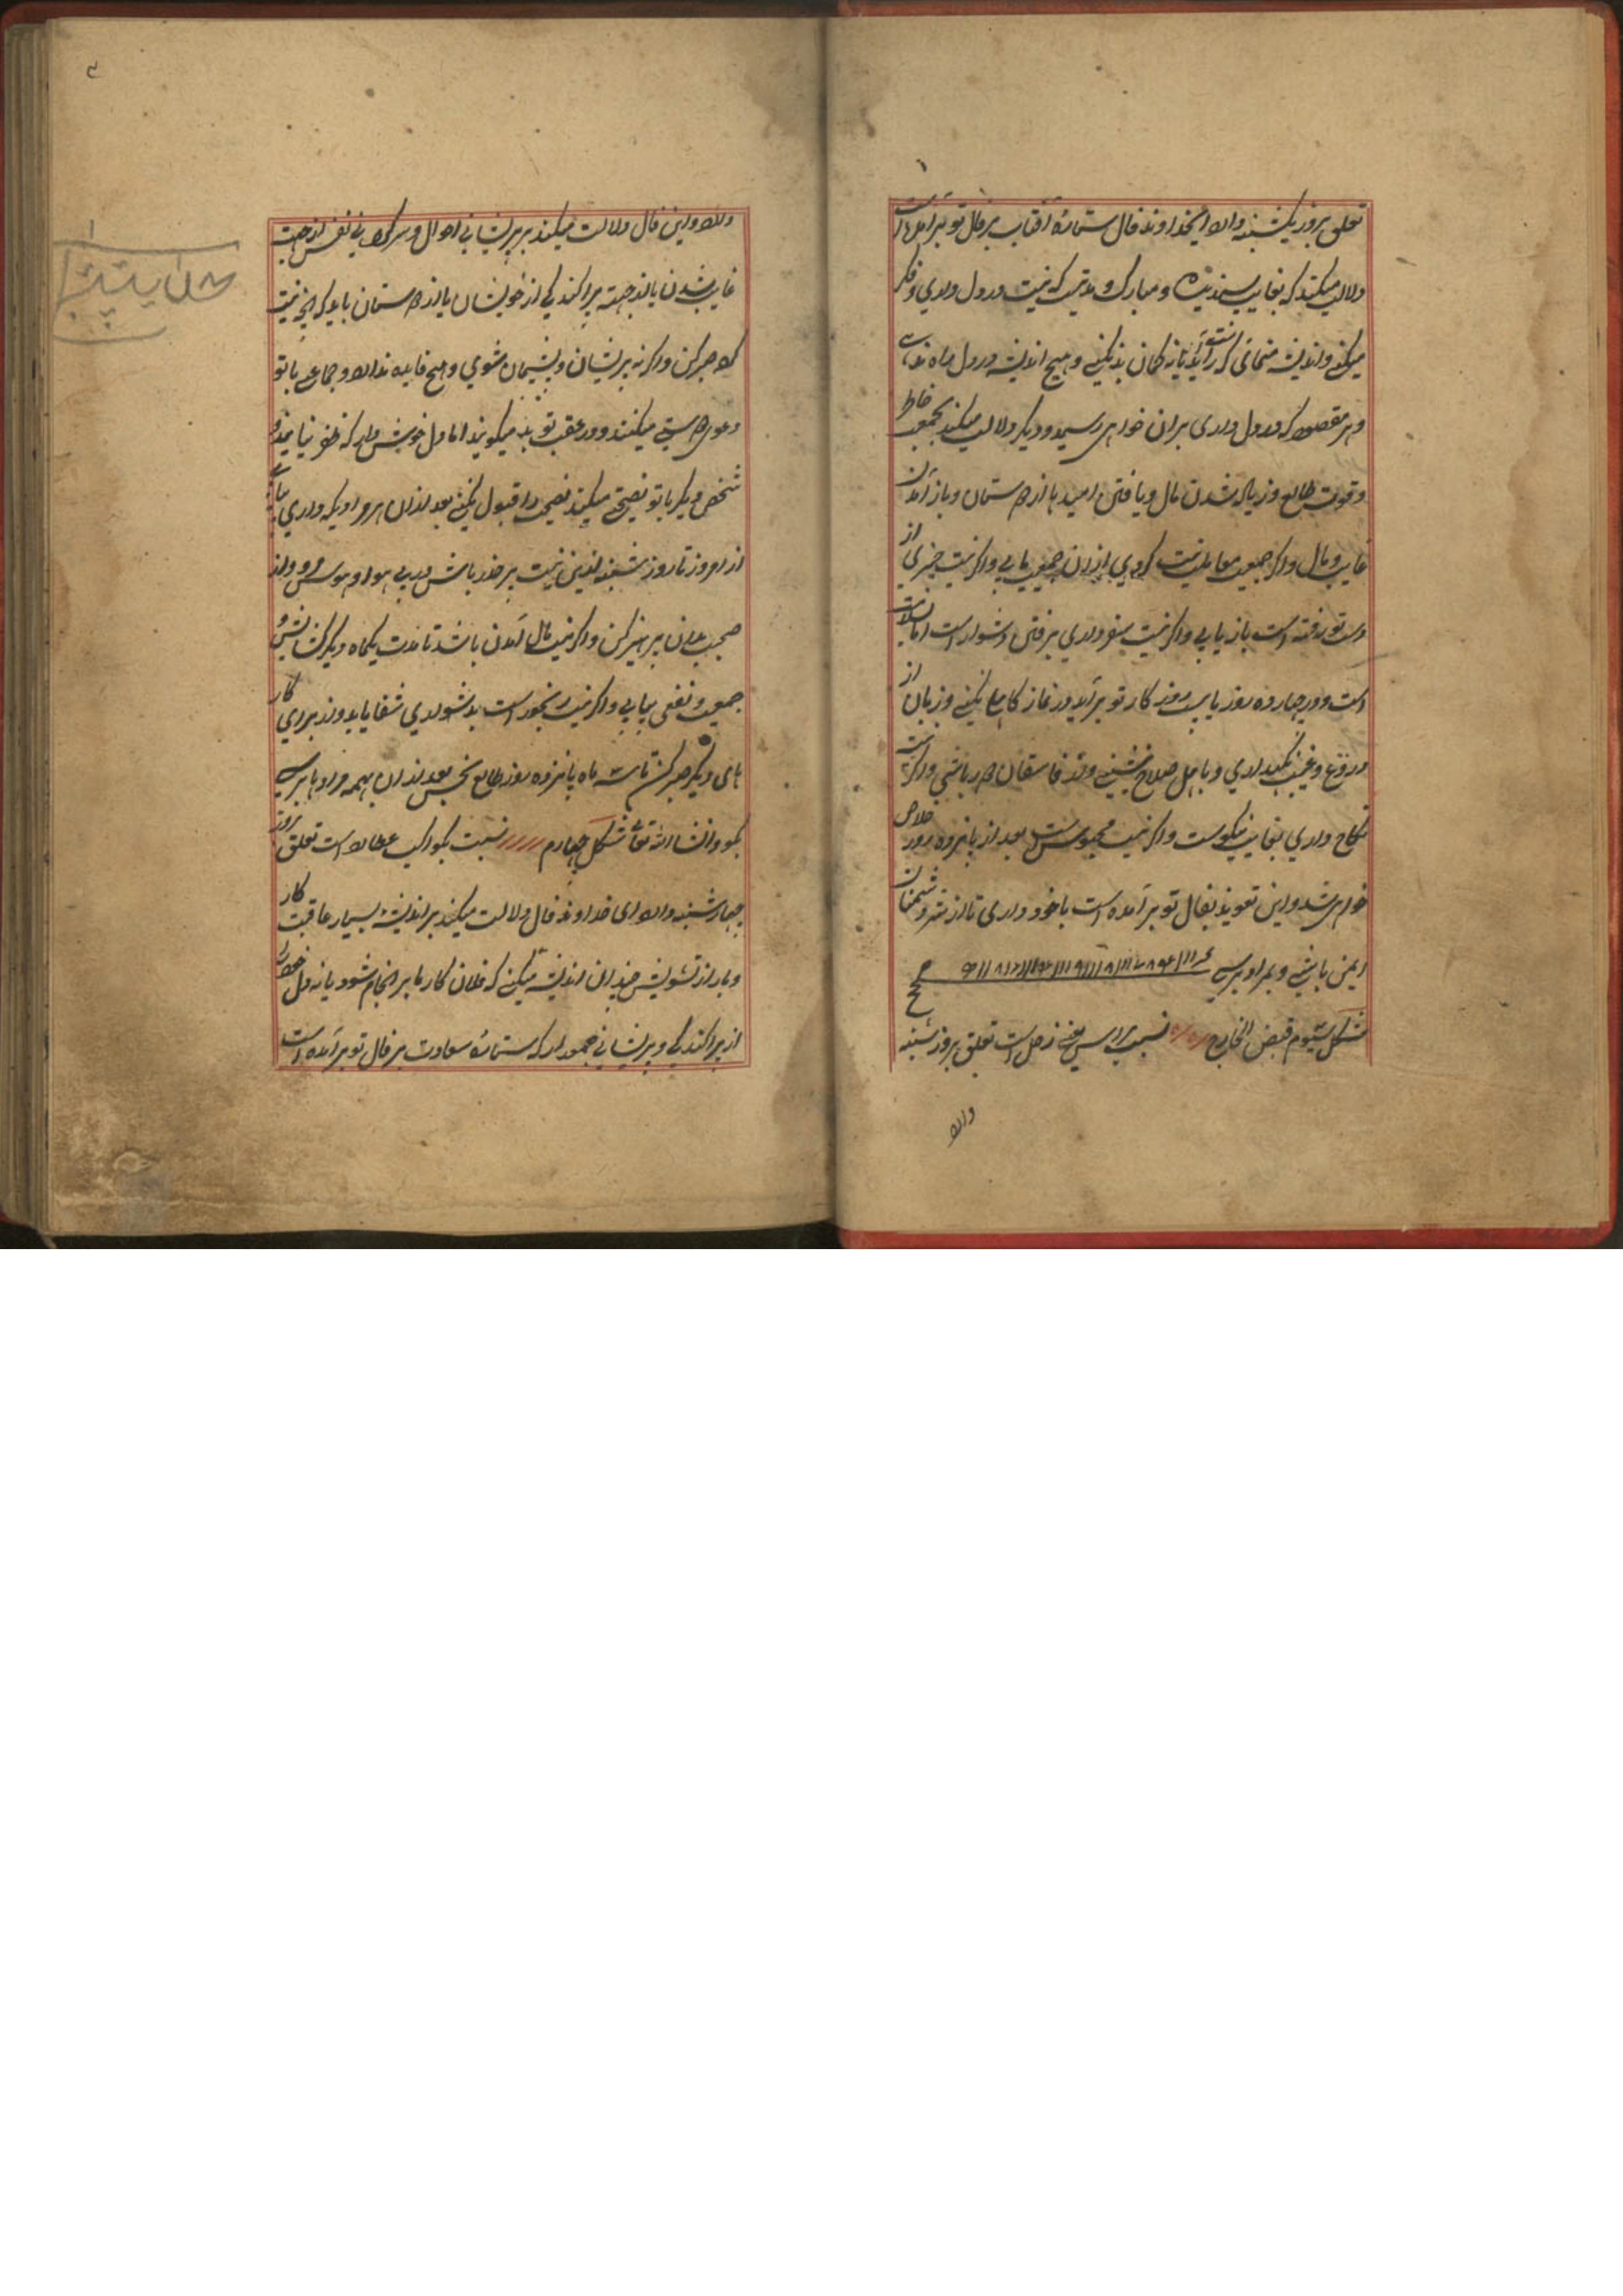 تعلق بروز یکشنبه دارد ایخداوند فال ستارهٔ آفتاب بر فال تو برآمده است
دلالت میکند که بغایت پسندیده و مبارک و مدتیست که نیت در دل داری و فکر
میکنی و اندیشه مینمائی که برآید یا نه گمان بد مکنی و هیچ اندیشه در دل
و هر مقصود که در دل داری بران خواهی رسید و دیگر دلالت میکند بجمعیت خاطر
و قوت طالع و زیاده شدن مال و یافتن امید با از دوستان و باز آمدن
غایب و مال و اگر جمعیت معامله نیت کردی ازان جمعیت یابی و اگر نیت چیزی از
دست تو رفته است باز یابی و اگر نیت سفر داری برفتن دشوار است اما سلامت
است و در چهارده روز یا بیست روز کار تو برآید در نماز کاهلی نکنی و زبان از
دروغ و غیبت نگهداری و با اهل صلاح نشینی و از فاسقان دور باشی و اگر نیت
نکاح داری بغایت نیکوست و اگر نیت محبوس است بعد از پانزده روز خلاص
خواهد شد و این تعویذ بفال تو برآمده است با خود داری تا از شر دشمنان
ایمن باشی و بمراد برسی
شکل سیوم قبض الخارج نسبت براس یعنی زحل است تعلق بروز شنبه
دارد
دارد و این فال دلالت میکند بر پریشانی احوال و سرگردانی نفس از جهت
غایب شدن یا از جهت پراکندگی از خویشان یا از دوستان باید که این نیت
که صبر کن و اگر نه پریشان و پشیمان شوی و هیچ فایده ندارد و جماعتی با تو
دعوی دوستی میکنند و در عقب تو بد میگویند اما دل خوش دار که ظفر نیابند
شخص دیگر با تو نصیحتی میکند نصیحت او قبول نکنی بعد ازان هر مرادیکه داری بیابی
از امروز تا روز شنبه ازین نیت بر حذر باش در پی هوا و هوس مرو و از
صحبت بدان پرهیز کن و اگر نیت مال آمدن باشد تا مدت یکماه دیگر گشایش و
جمعیت و نفعی بیابی و اگر نیت رنجور است بدشواری شفا یابد و از برای کار
های دیگر صبر کن تا سه ماه پانزده روز طالع نحس بعد ازان همه مرادها برسی
نکو و انشاالله تعالی شکل چهارم نسبت بکواکب عطارد است تعلق بروز
چهارشنبه دارد ای خداوند فال دلالت میکند بر اندیشهٔ بسیار عاقبت کار
و باراز تشویش چندان اندیشه میکنی که فلان کار ما سرانجام شود یا نه دل
از پراکندگی و پریشانی جمع دار که ستارهٔ سعادت بر فال تو برآمده است